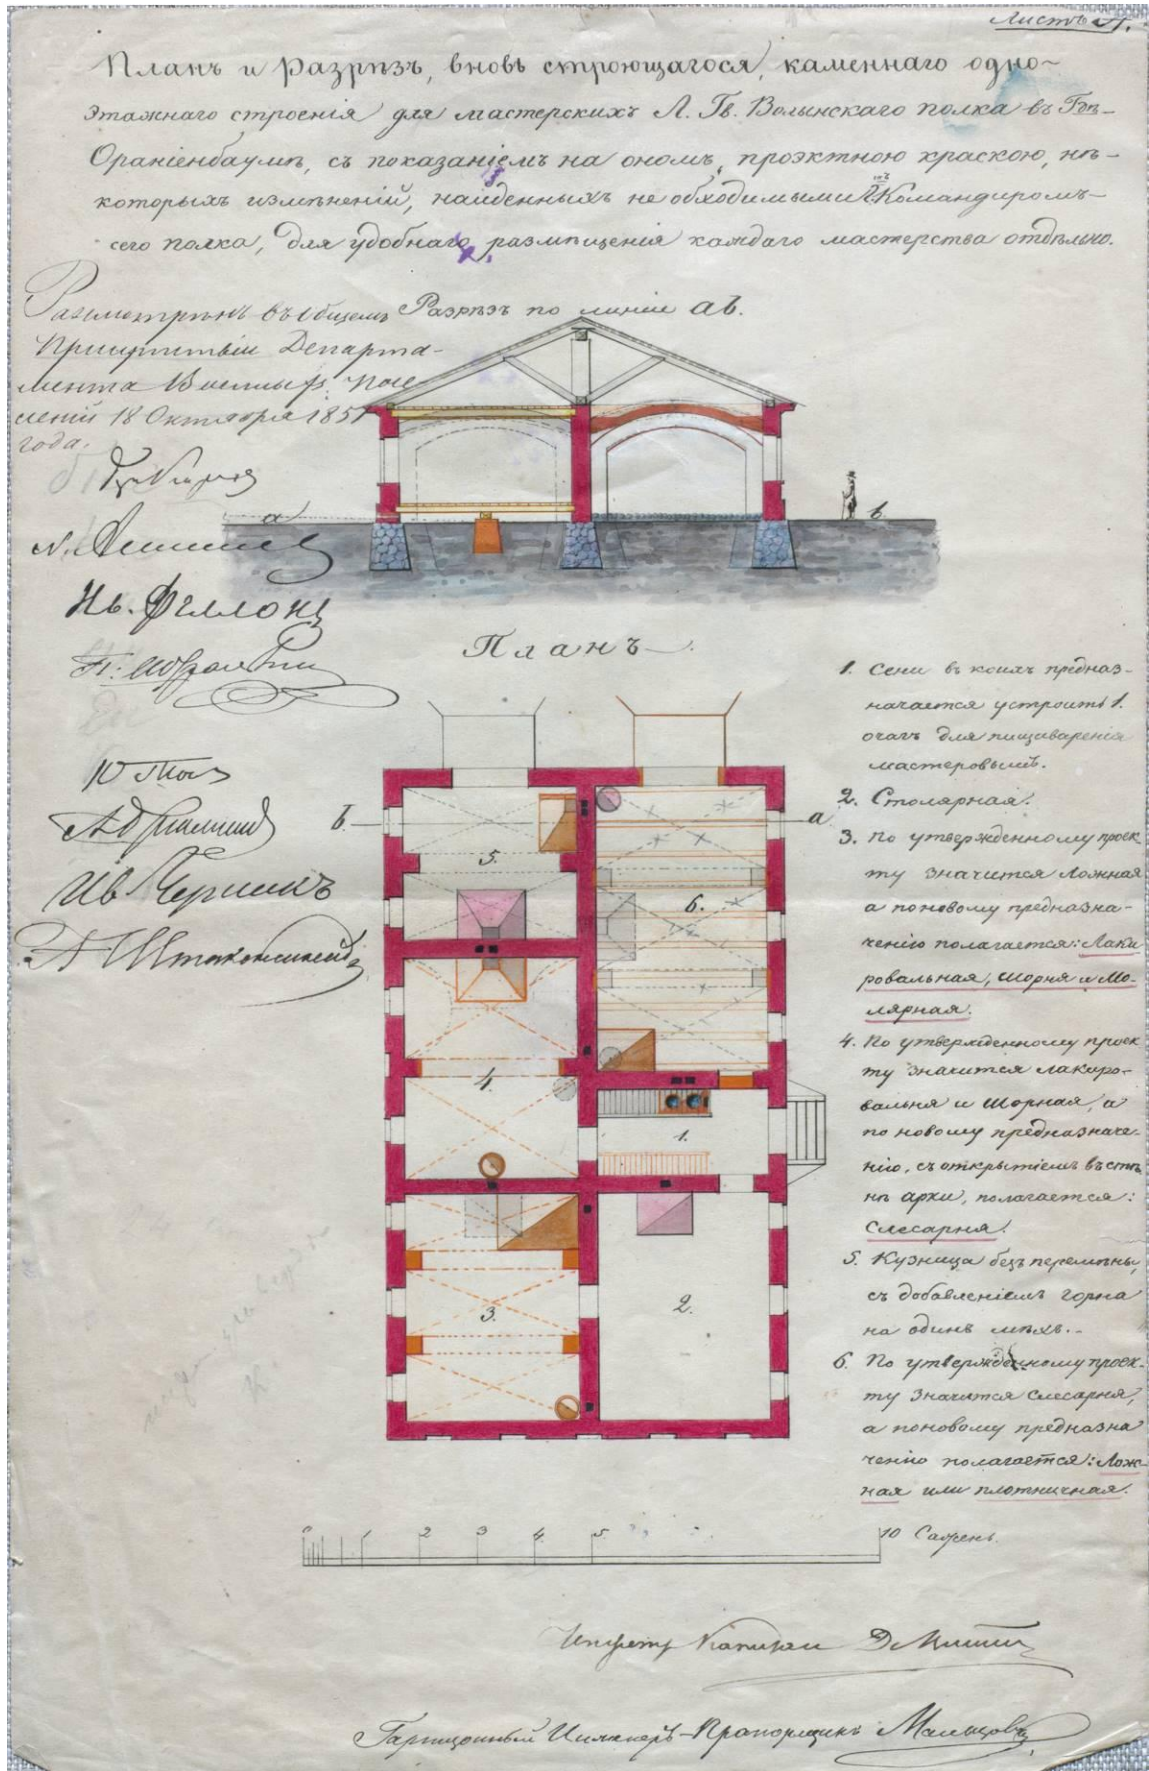 Листъ
Планъ и Разрѣзъ, вновь строющагося, каменнаго одно-
этажнаго строенія для мастерскихъ Л. Гв. Волынскаго полка въ Гор-
Ораніенбаумѣ, съ показаніемъ на ономъ, проэктною краскою, нѣ-
которыхъ измѣненій, найденныхъ не обходимыми Г. Командиромъ
сего полка, для удобнаго размѣщенія каждаго мастерства отдѣльно.
Разсмотрѣнъ въ общемъ
Присутствіи Департа-
мента Военныхъ Посе
леній 18 Октября 1851
года.
Разрѣзъ по линіи ав.
а
в.
Планъ
в.
а
5.
6.
4.
1.
3.
2.
1. Сени въ коихъ предназ-
начается устроить 1.
очагъ для пищиваренія
мастеровымъ.
2. Столярная.
3. По утвержденному проек
ту значится Ложная
а по новому предназна-
ченію полагается: Лаки
ровальная, Шорня и Мо-
лярная.
4. По утвержденному проек
ту значится лакиро-
вальня и Шорная, а
по новому предназначе-
нію, съ открытіемъ въ стѣ
нѣ арки, полагается:
Слесарня.
5. Кузница безъ перемѣны,
съ добавленіемъ горна
на одинъ мѣхъ.
6. По утвержденному проек-
ту значится Слесарня,
а по новому предназна
ченію полагается: Лож-
ная или плотничная.
0 1 2 3 4 5 10 Сажень.
Капитан
Гарнизонный Инженеръ-Прапорщикъ